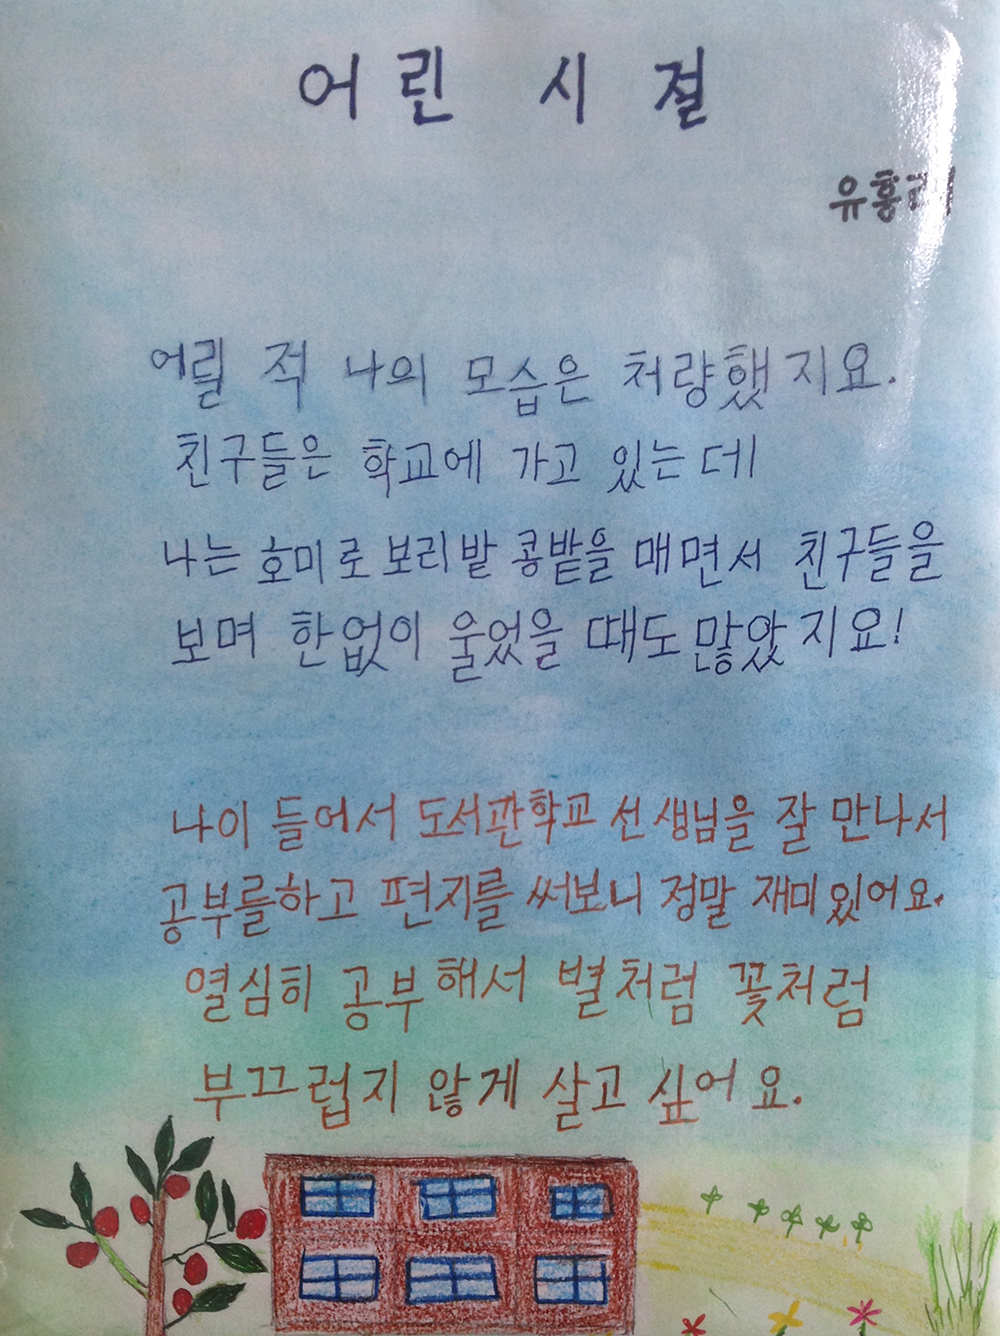 어린 시절
어릴 적 나의 모습은 처량했지요.
친구들은 학교에 가고 있는데
나는 호미로 보리밭 콩밭을 매면서 친구들을
보며 한없이 울었을 때도 많았지요!
나이 들어서 도서관학교 선생님을 잘 만나서
공부를하고 편지를 써보니 정말 재미있어요.
열심히 공부해서 별처럼 꽃처럼
부끄럽지 않게 살고 싶어요.